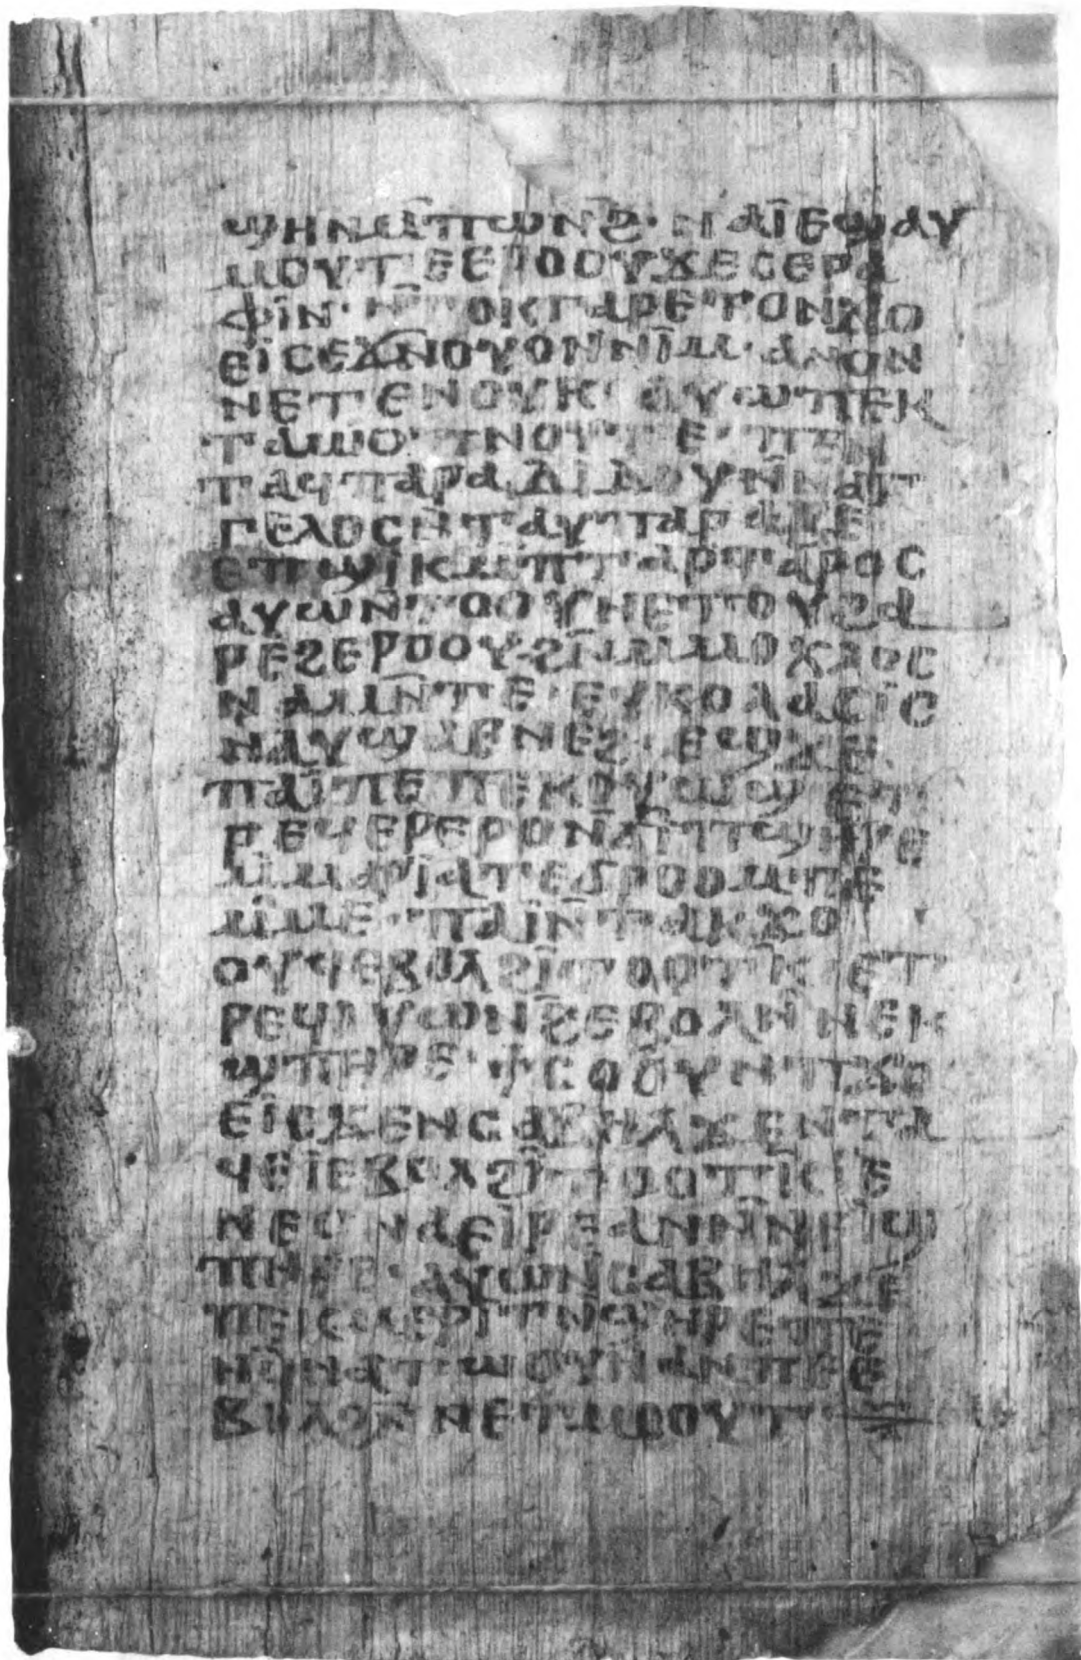 ϣⲏⲛⲙ̅ⲡⲱⲛϩ̅· ⲛⲁⲓ̈ⲉϣⲁⲩ
ⲙⲟⲩⲧⲉⲉⲣⲟⲟⲩϫⲉⲥⲉⲣⲁ
ⲫⲓⲛ· ⲛ̅ⲧⲟⲕⲅⲁⲣⲉⲧⲟⲛϫⲟ
ⲉⲓ̈ⲥⲉϫⲛ̅ⲟⲩⲟⲛⲛⲓ̈ⲙ· ⲁⲛⲟⲛ
ⲛⲉⲧⲉⲛⲟⲩⲕ· ⲁⲩⲱⲡⲉⲕ
ⲧⲁⲙⲓⲟ· ⲡⲛⲟⲩⲧⲉ· ⲡⲉⲛ
ⲧⲁϥⲡⲁⲣⲁⲇⲓⲇⲟⲩⲛ̅ⲛⲁⲅ
ⲅⲉⲗⲟⲥⲛ̅ⲧⲁⲩⲡⲁⲣⲁⲃⲉ
ⲉⲡϣⲓ̈ⲕⲙ̅ⲡⲧⲁⲣⲧⲁⲣⲟⲥ
ⲁⲩⲱⲛ̅ⲧⲟⲟⲩⲛⲉⲧⲟⲩϩⲁ
ⲣⲉϩⲉⲣⲟⲟⲩϩⲛ̅ⲙⲙⲟⲭⲗⲟⲥ
ⲛⲁⲙⲛ̅ⲧⲉ· ⲉⲩⲕⲟⲗⲁⲥⲓ̈ⲥ
ⲛ̅ⲁⲩϣⲁⲉⲛⲉϩ· ⲉϣϫⲉ
ⲡⲁⲓ̈ⲡⲉⲡⲉⲕⲟⲩⲱϣⲉⲧ
ⲣⲉϥⲉⲣⲉⲣⲟⲛⲛ̅ϭⲓⲡϣⲏⲣⲉ
ⲙ̅ⲙⲁⲣⲓ̈ⲁⲧⲉϭⲣⲟⲟⲙⲡⲉ
ⲙ̅ⲙⲉ· ⲡⲁⲓ̈ⲛ̅ⲧⲁⲕϫⲟ
ⲟⲩϥⲉⲃⲟⲗϩⲓ̈ⲧⲟⲟⲧⲕ̅ ⲉⲧ
ⲣⲉϥⲟⲩⲱⲛϩ̅ⲉⲃⲟⲗⲛ̅ⲛⲉⲕ
ϣⲡⲏⲣⲉ· ϯⲥⲟⲟⲩⲛⲡϫⲟ
ⲉⲓ̈ⲥϫⲉⲛⲥⲁⲃⲏⲗϫⲉⲛⲧⲁ
ϥⲉⲓⲉⲃⲟⲗϩⲓ̈ⲧⲟⲟⲧⲕ̅
ⲛⲉϥⲛⲁⲉⲓ̈ⲣⲉⲁⲛⲛ̅ⲛⲉⲓ̈ϣ
ⲡⲏⲣⲉ· ⲁⲩⲱⲛ̅ⲥⲁⲃⲏⲗϫⲉ
ⲡⲉⲕⲙⲉⲣⲓⲧⲛ̅ϣⲏⲣⲉⲡⲉ
ⲛⲉϥⲛⲁⲧⲱⲟⲩⲛⲁⲛⲡⲉⲉ
ⲃⲟⲗϩⲛ̅ⲛⲉⲧⲙⲟⲟⲩⲧ